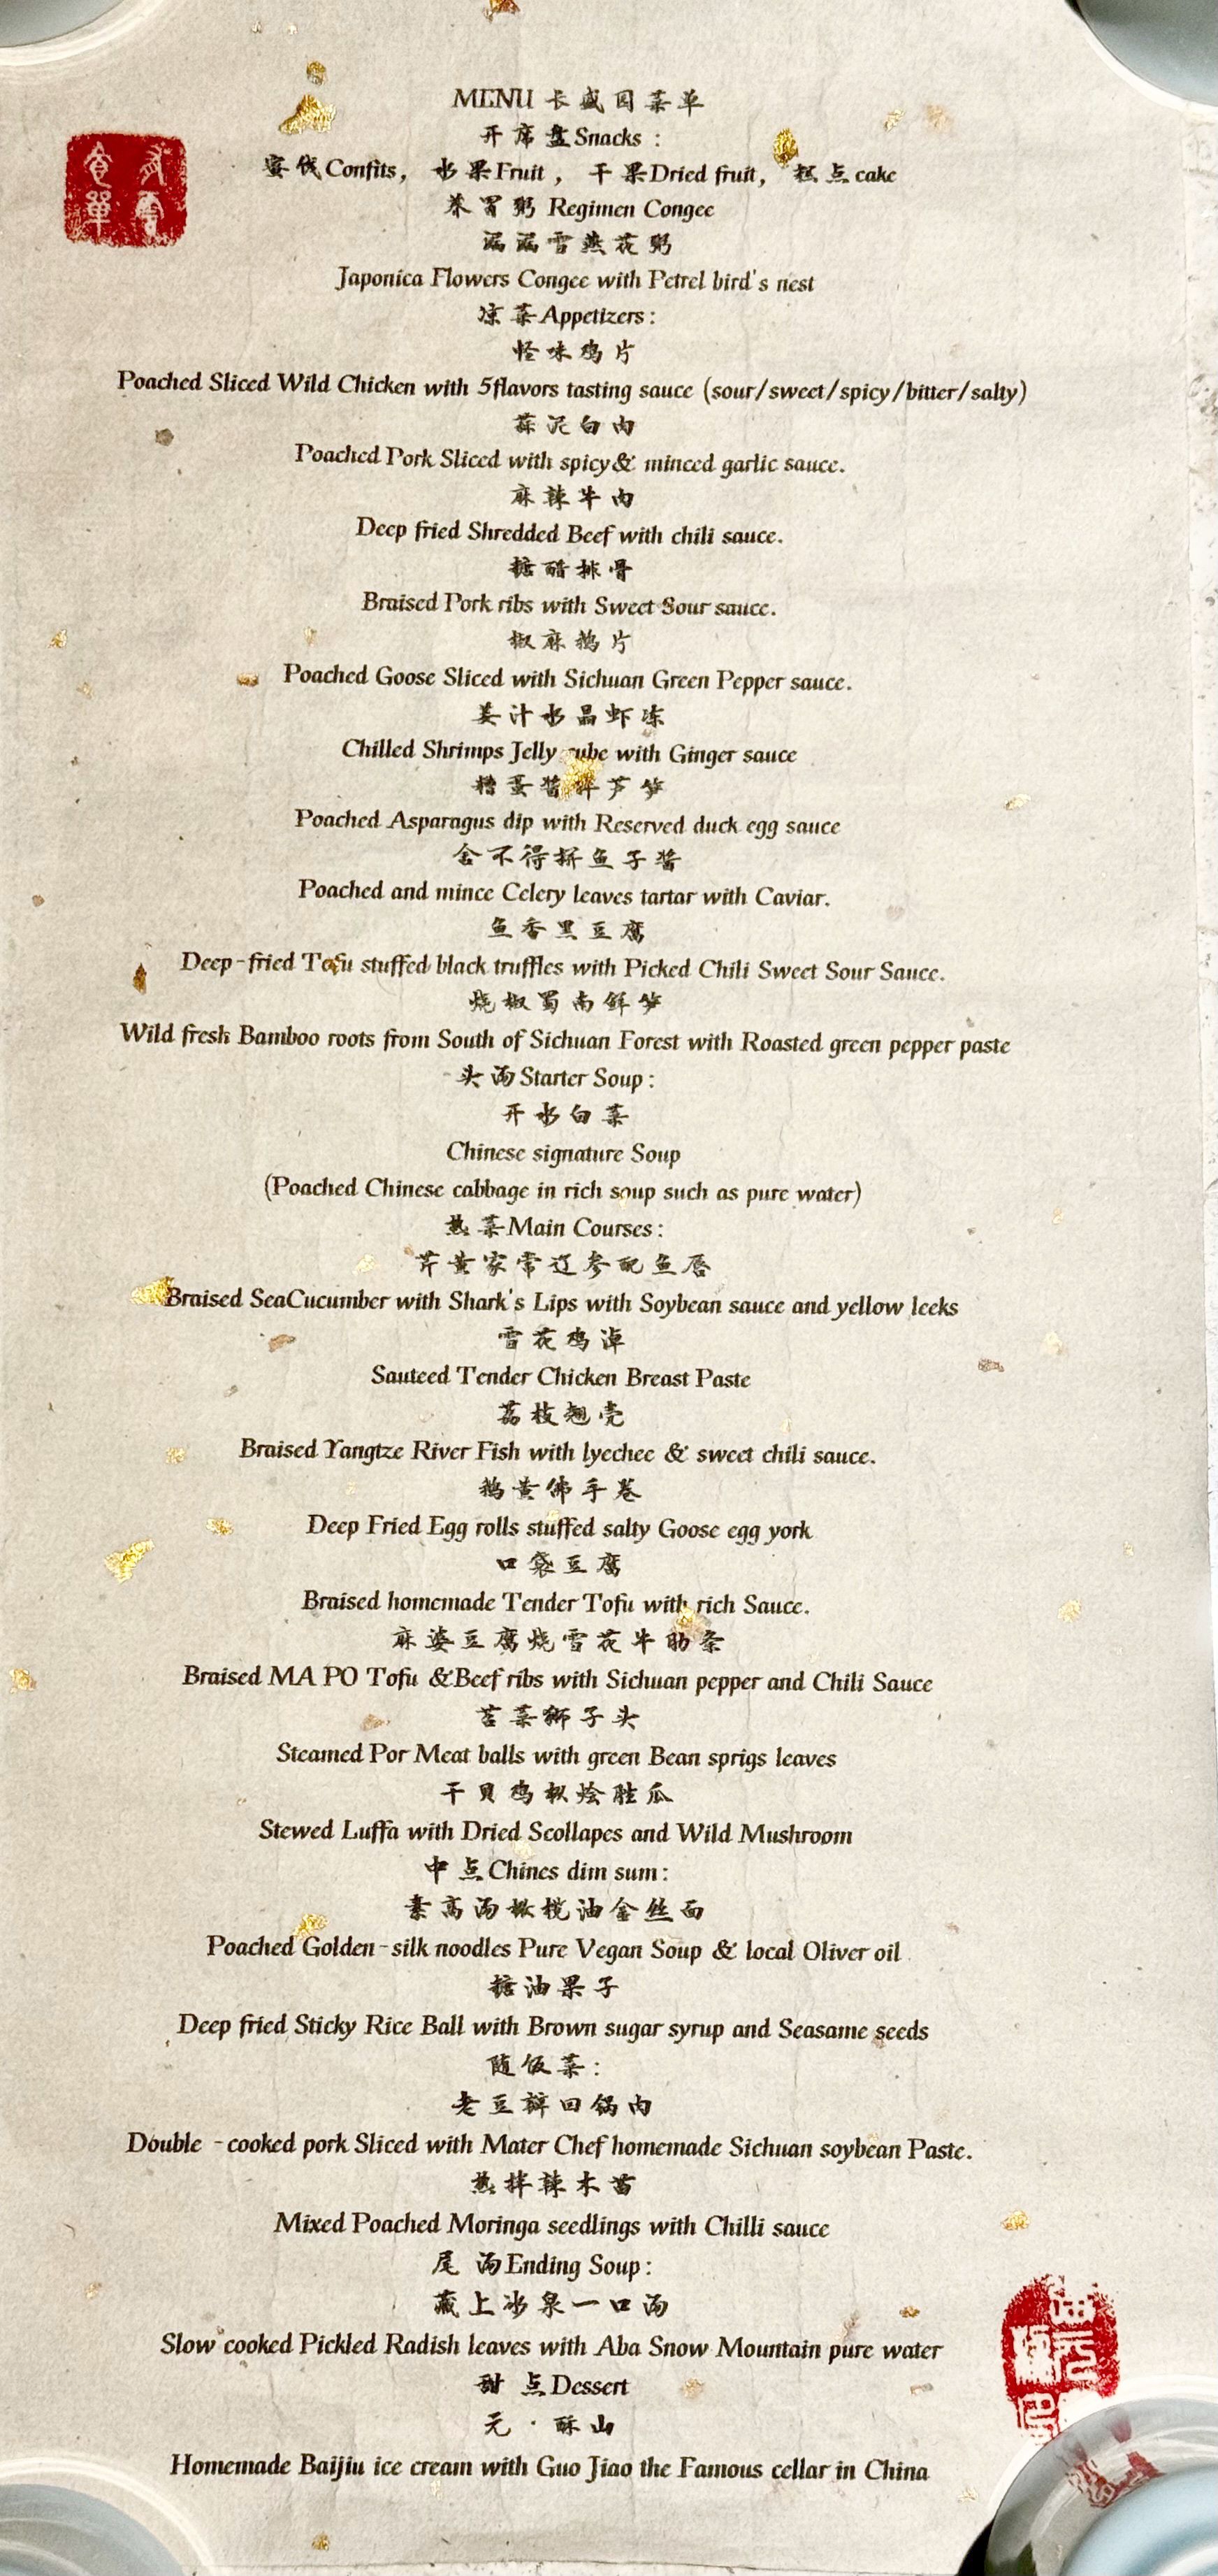 MENU 卡盛园菜单
开席盘Snacks :
蜜饯Confits, 水果Fruit , 干果Dried fruit, 糕点cake
养胃粥 Regimen Congee
漏漏雪燕花粥
Japonica Flowers Congee with Petrel bird's nest
凉菜Appetizers:
怪味鸡片
Poached Sliced Wild Chicken with 5flavors tasting sauce (sour/sweet/spicy/bitter/salty)
蒜泥白肉
Poached Pork Sliced with spicy& minced garlic sauce.
麻辣牛肉
Deep fried Shredded Beef with chili sauce.
糖醋排骨
Braised Pork ribs with Sweet Sour sauce.
椒麻鹅片
Poached Goose Sliced with Sichuan Green Pepper sauce.
姜汁水晶虾冻
Chilled Shrimps Jelly cube with Ginger sauce
糟蛋酱拌芦笋
Poached Asparagus dip with Reserved duck egg sauce
舍不得拼鱼子酱
Poached and mince Celery leaves tartar with Caviar.
鱼香黑豆腐
Deep-fried Tofu stuffed black truffles with Picked Chili Sweet Sour Sauce.
烧椒蜀南鲜笋
Wild fresh Bamboo roots from South of Sichuan Forest with Roasted green pepper paste
头汤Starter Soup:
开水白菜
Chinese signature Soup
(Poached Chinese cabbage in rich soup such as pure water)
热菜Main Courses:
芹黄家常辽参配鱼唇
Braised SeaCucumber with Shark's Lips with Soybean sauce and yellow leeks
雪花鸡淖
Sauteed Tender Chicken Breast Paste
荔枝翘壳
Braised Yangtze River Fish with lyechee & sweet chili sauce.
鹅黄佛手卷
Deep Fried Egg rolls stuffed salty Goose egg york
口袋豆腐
Braised homemade Tender Tofu with rich Sauce.
麻婆豆腐烧雪花牛肋条
Braised MA PO Tofu &Beef ribs with Sichuan pepper and Chili Sauce
苕菜狮子头
Steamed Por Meat balls with green Bean sprigs leaves
干贝鸡枞烩胜瓜
Stewed Luffa with Dried Scollapes and Wild Mushroom
中点Chines dim sum:
素高汤橄榄油金丝面
Poached Golden-silk noodles Pure Vegan Soup & local Oliver oil
糖油果子
Deep fried Sticky Rice Ball with Brown sugar syrup and Seasame seeds
随饭菜:
老豆瓣回锅肉
Double -cooked pork Sliced with Mater Chef homemade Sichuan soybean Paste.
热拌辣木苗
Mixed Poached Moringa seedlings with Chilli sauce
尾 汤Ending Soup:
藏上冰泉一口汤
Slow cooked Pickled Radish leaves with Aba Snow Mountain pure water
甜 点Dessert
元·酥山
Homemade Baijiu ice cream with Guo Jiao the Famous cellar in China